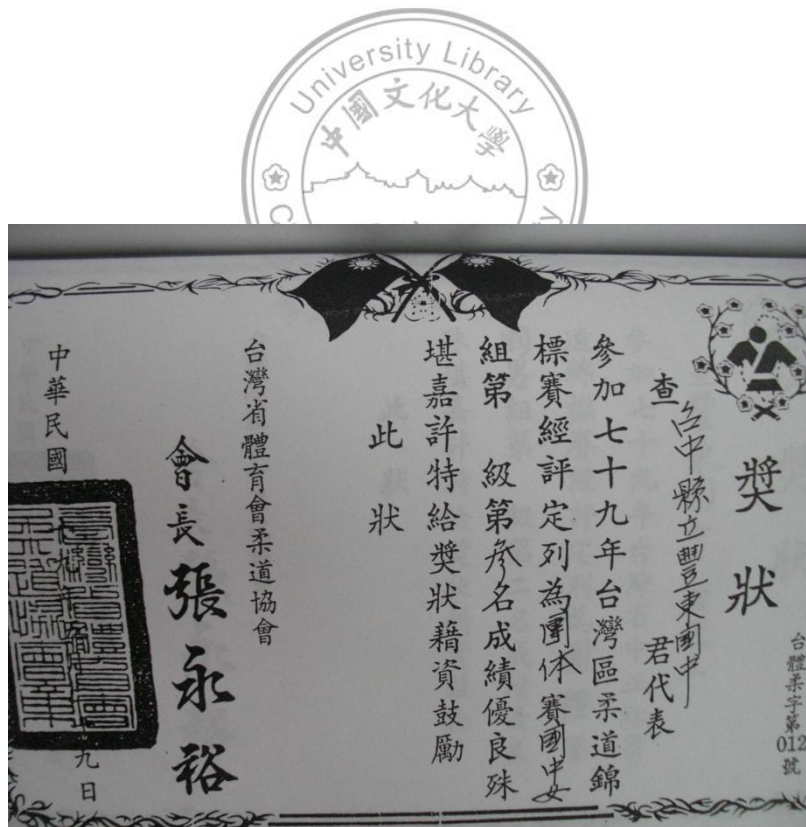 University Library
中國文化大學
獎狀
台體柔字第012號
查台中縣立豐東國中
君代表
參加七十九年台灣區柔道錦
標賽經評定列為團体賽國中女
組第 級第参名成績優良殊
堪嘉許特給獎狀藉資鼓勵
此狀
台灣省體育會柔道協會
會長張永裕
中華民國
九日